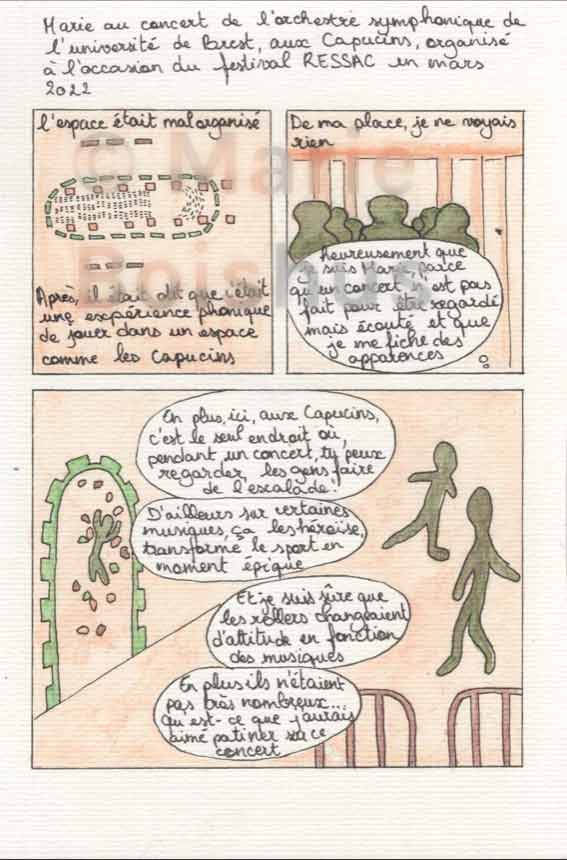 Marie au concert de l'orchestre symphonique de
l'université de Brest, aux Capucins, organisé
à l'occasion du festival RESSAC en mars
2022
l'espace était mal organisé
Après, il était dit que c'était
une expérience phonique
de jouer dans un espace
comme les Capucins
De ma place, je ne voyais
rien
heureusement que
je suis Marie, parce
qu'un concert, n'est pas
fait pour être regardé
mais écouté et que
je me fiche des
apparences
En plus, ici, aux Capucins,
c'est le seul endroit où,
pendant un concert, ty peux
regarder les gens faire
de l'escalade!
D'ailleurs sur certaines
musiques, ça les héroïse,
transforme le sport en
moment épique
Et je suis sûre que
les rollers changeaient
d'attitude en fonction
des musiques
En plus ils n'étaient
pas très nombreux...
Qu'est-ce que j'aurais
aimé patiner sur ce
concert
© Marie